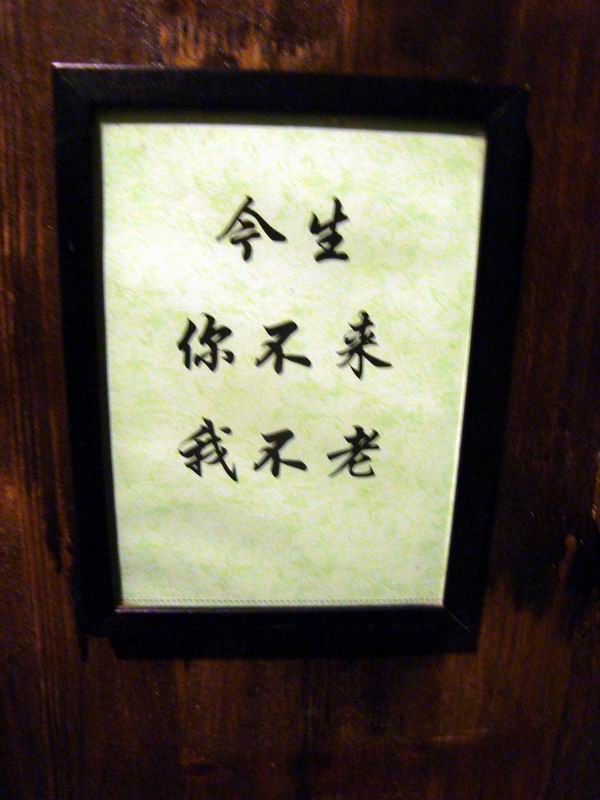 今生
你不来
我不老